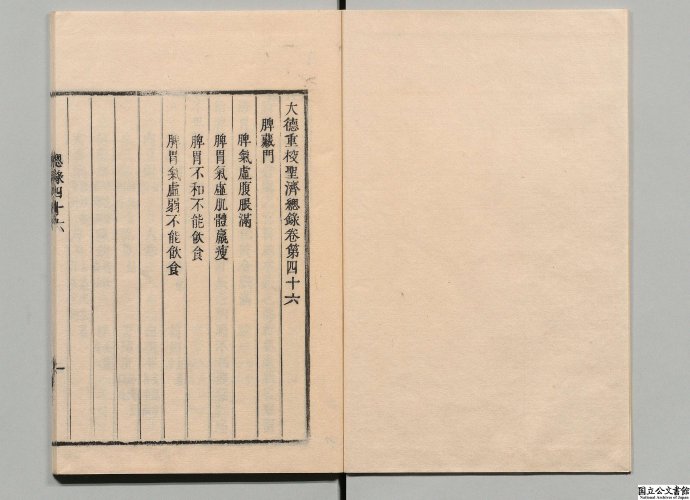 大德重校聖濟總錄卷第四十六
脾藏門
脾氣虛腹脹滿
脾胃氣虛肌體羸瘦
脾胃不和不能飲食
脾胃氣虛弱不能飲食
總錄四十六
一
国立公文書館
National Archives of Japan